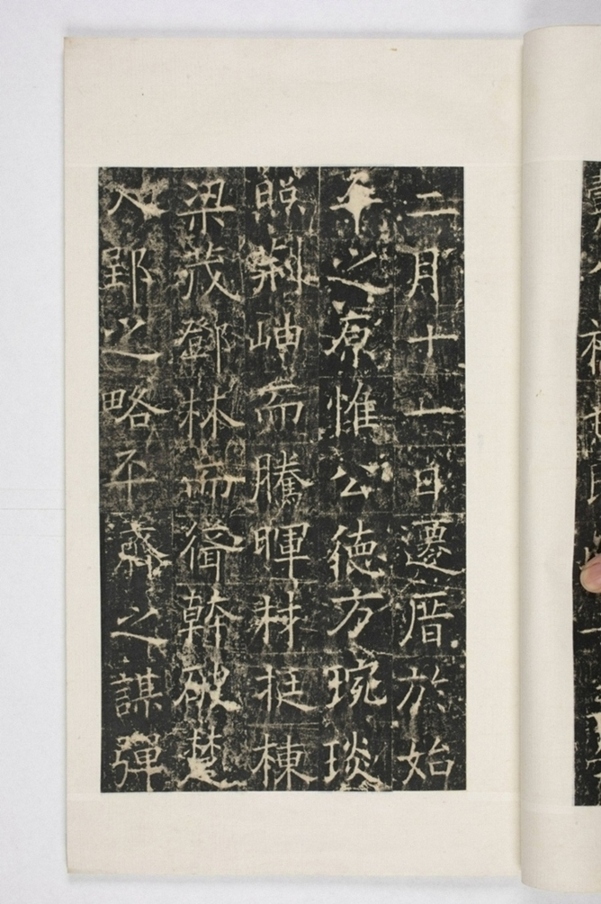 二月十一日遷厝於始
平之原惟公德方琬琰
照荆岫而騰暉材挺棟
梁茂鄧林而幹破楚
入郢之略平之謀彈